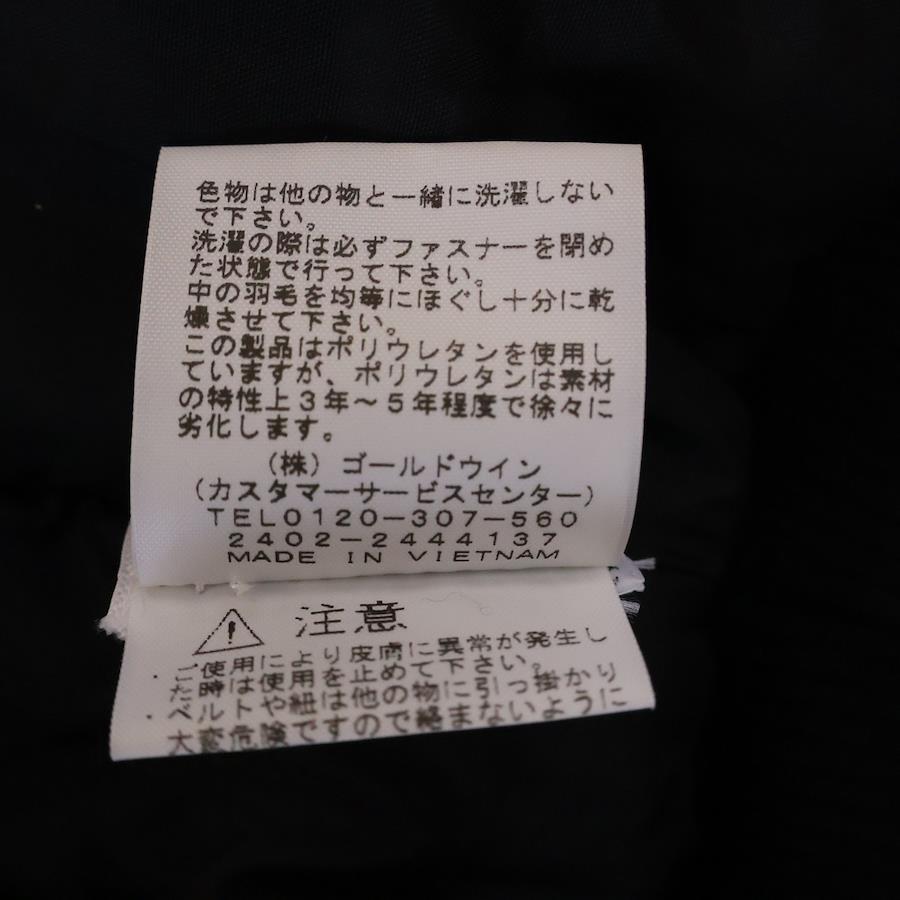 色物は他の物と一緒に洗濯しない
で下さい。
洗濯の際は必ずファスナーを閉め
た状態で行って下さい。
中の羽毛を均等にほぐし十分に乾
燥させて下さい。
この製品はポリウレタンを使用し
ていますが、ポリウレタンは素材
の特性上3年〜5年程度で徐々に
劣化します。
(株)ゴールドウイン
(カスタマーサービスセンター)
TEL0120-307-560
2402-2444137
MADE IN VIETNAM
注意
ご使用により皮膚に異常が発生し
た時は使用を止めて下さい。
・ベルトや紐は他の物に引っ掛かり
大変危険ですので絡まないように